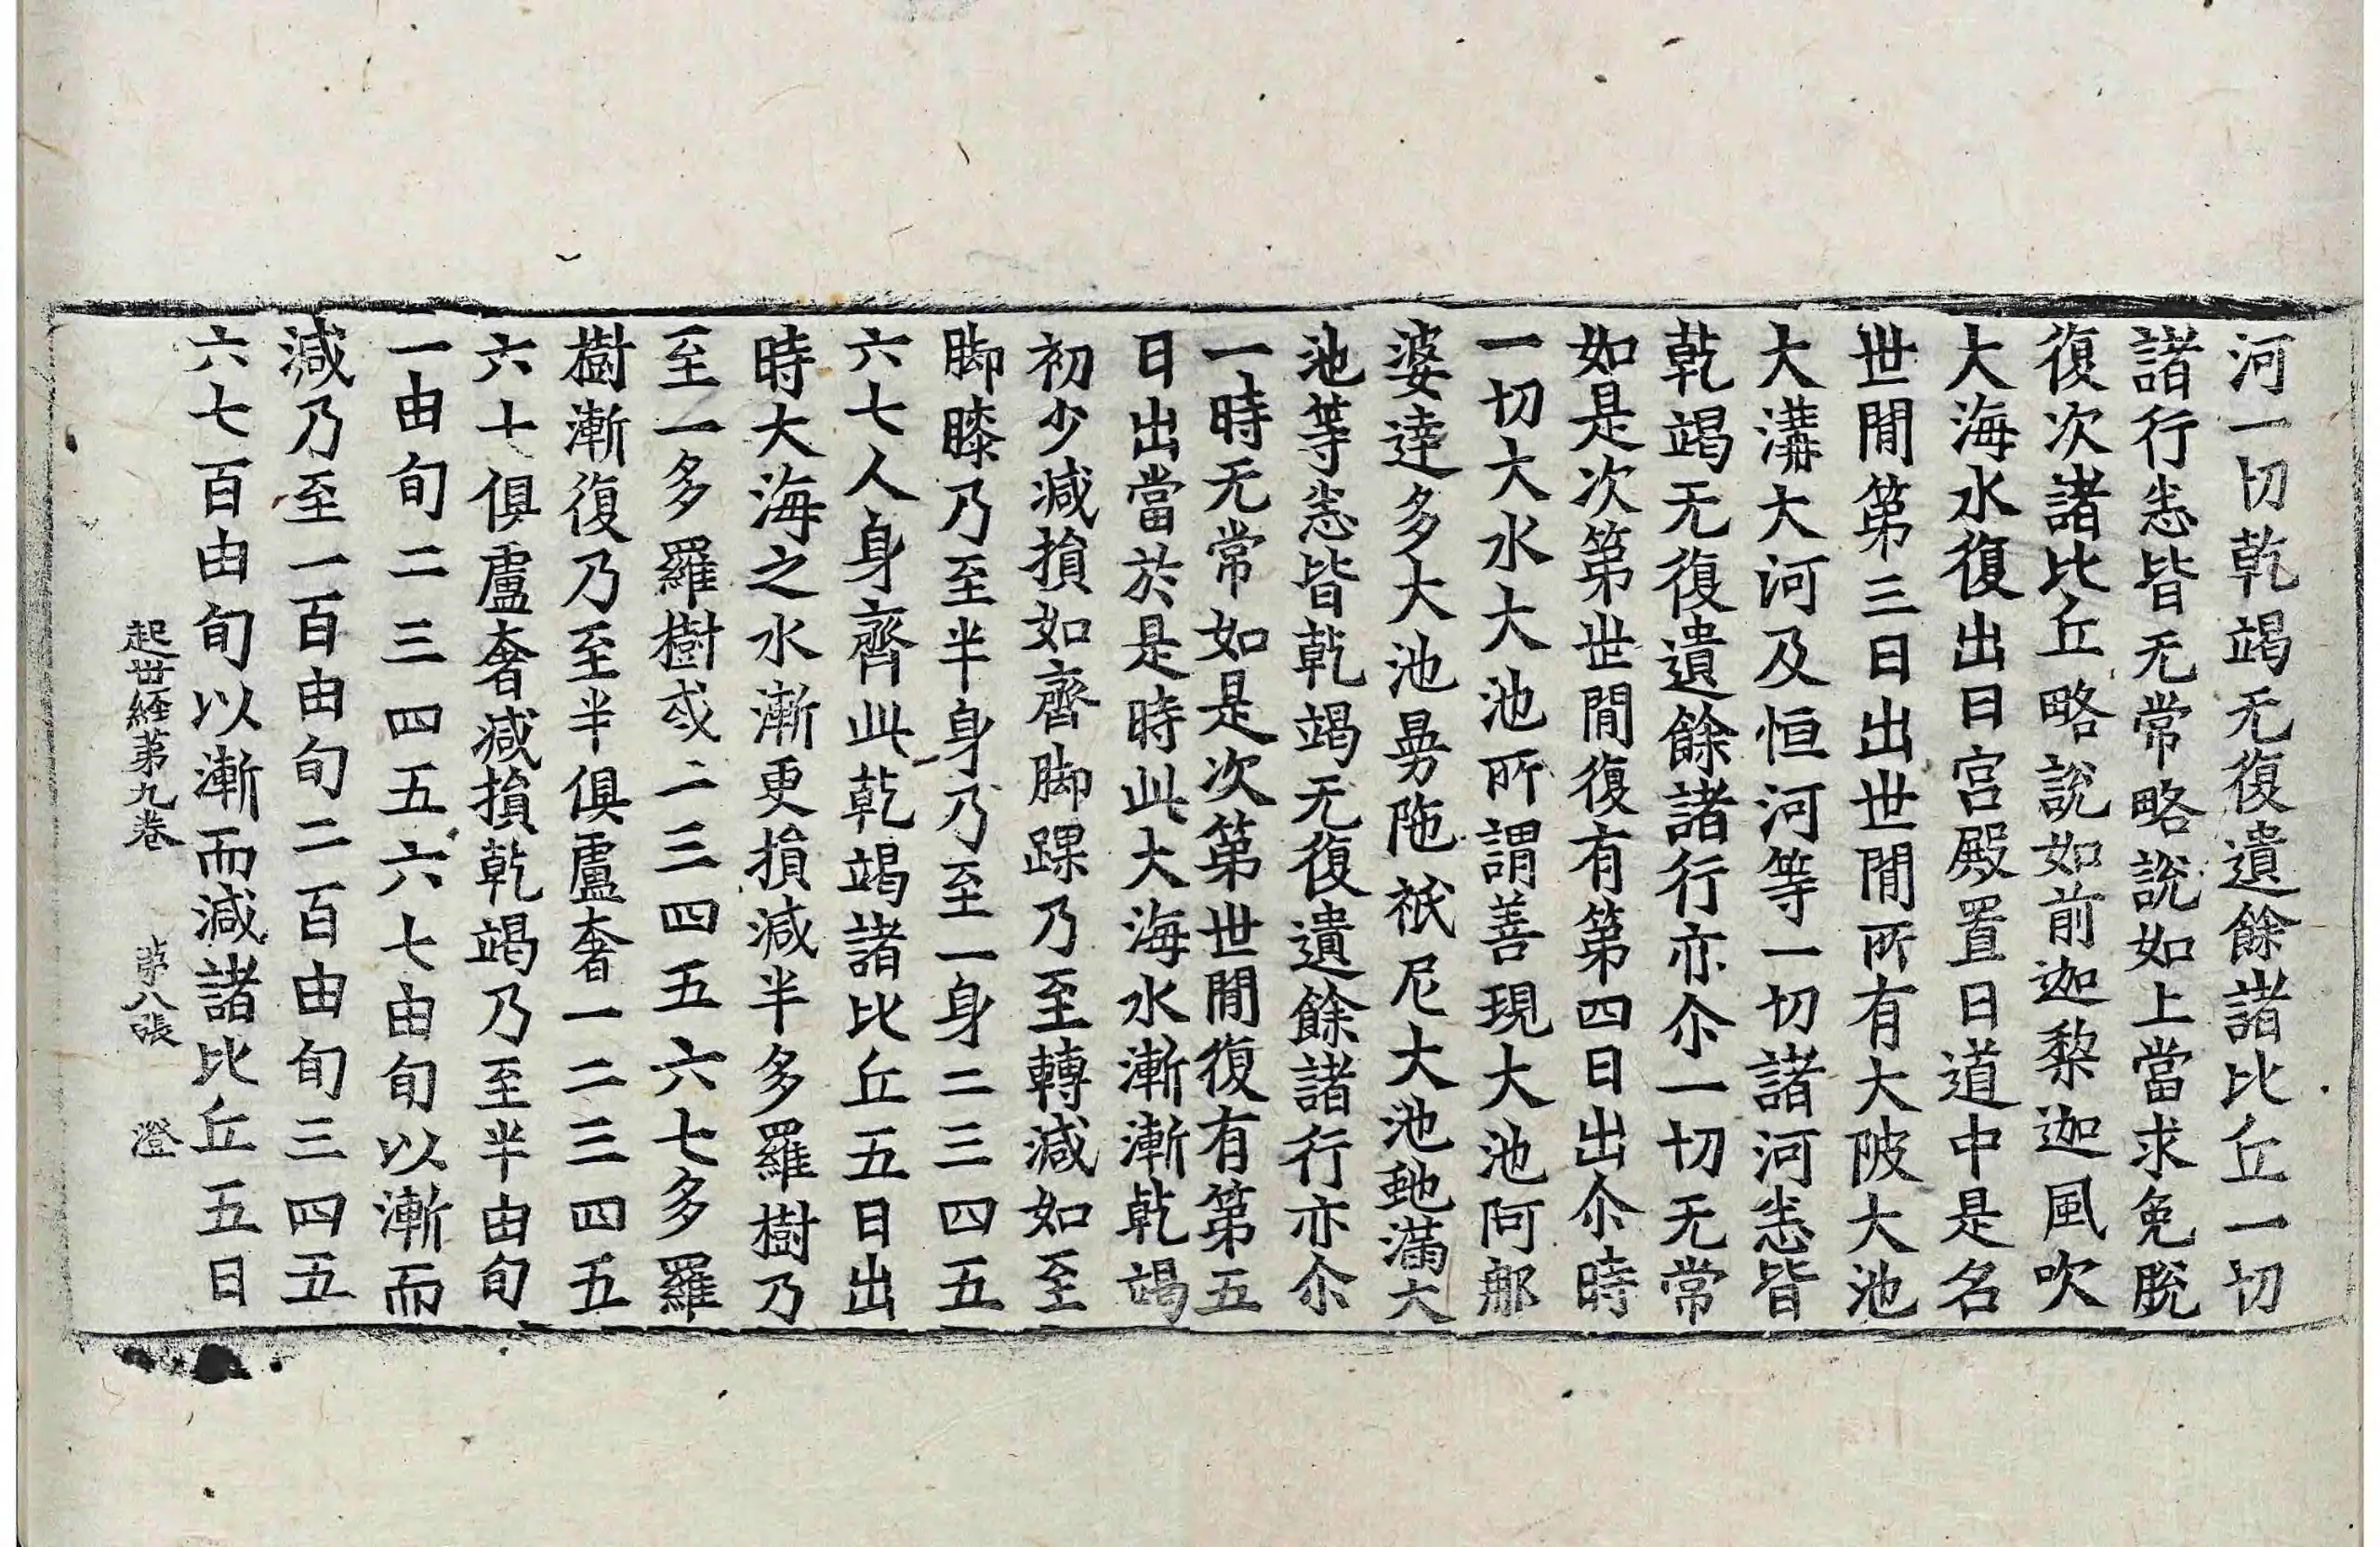 河一切乾竭无復遺餘諸比丘一切
諸行悉皆无常略說如上當求免脫
復次諸比丘略說如前迦梨迦風吹
大海水復出日宮殿置日道中是名
世間第三日出世間所有大陂大池
大溝大河及恒河等一切諸河悉皆
乾竭无復遺餘諸行亦尒一切无常
如是次第世間復有第四日出尒時
一切大水大池所謂善現大池阿那
婆達多大池曼陁祇尼大池虵滿大
池等悉皆乾竭无復遺餘諸行亦尒
一時无常如是次第世間復有第五
日出當於是時此大海水漸漸乾竭
初少減損如齊脚踝乃至轉減如至
脚膝乃至半身乃至一身二三四五
六七人身齊此乾竭諸比丘五日出
時大海之水漸更損減半多羅樹乃
至一多羅樹或二三四五六七多羅
樹漸復乃至半俱盧奢一二三四五
六七俱盧奢減損乾竭乃至半由旬
一由旬二三四五六七由旬以漸而
減乃至一百由旬二百由旬三四五
六七百由旬以漸而減諸比丘五日
起世経第九卷 第八張 澄